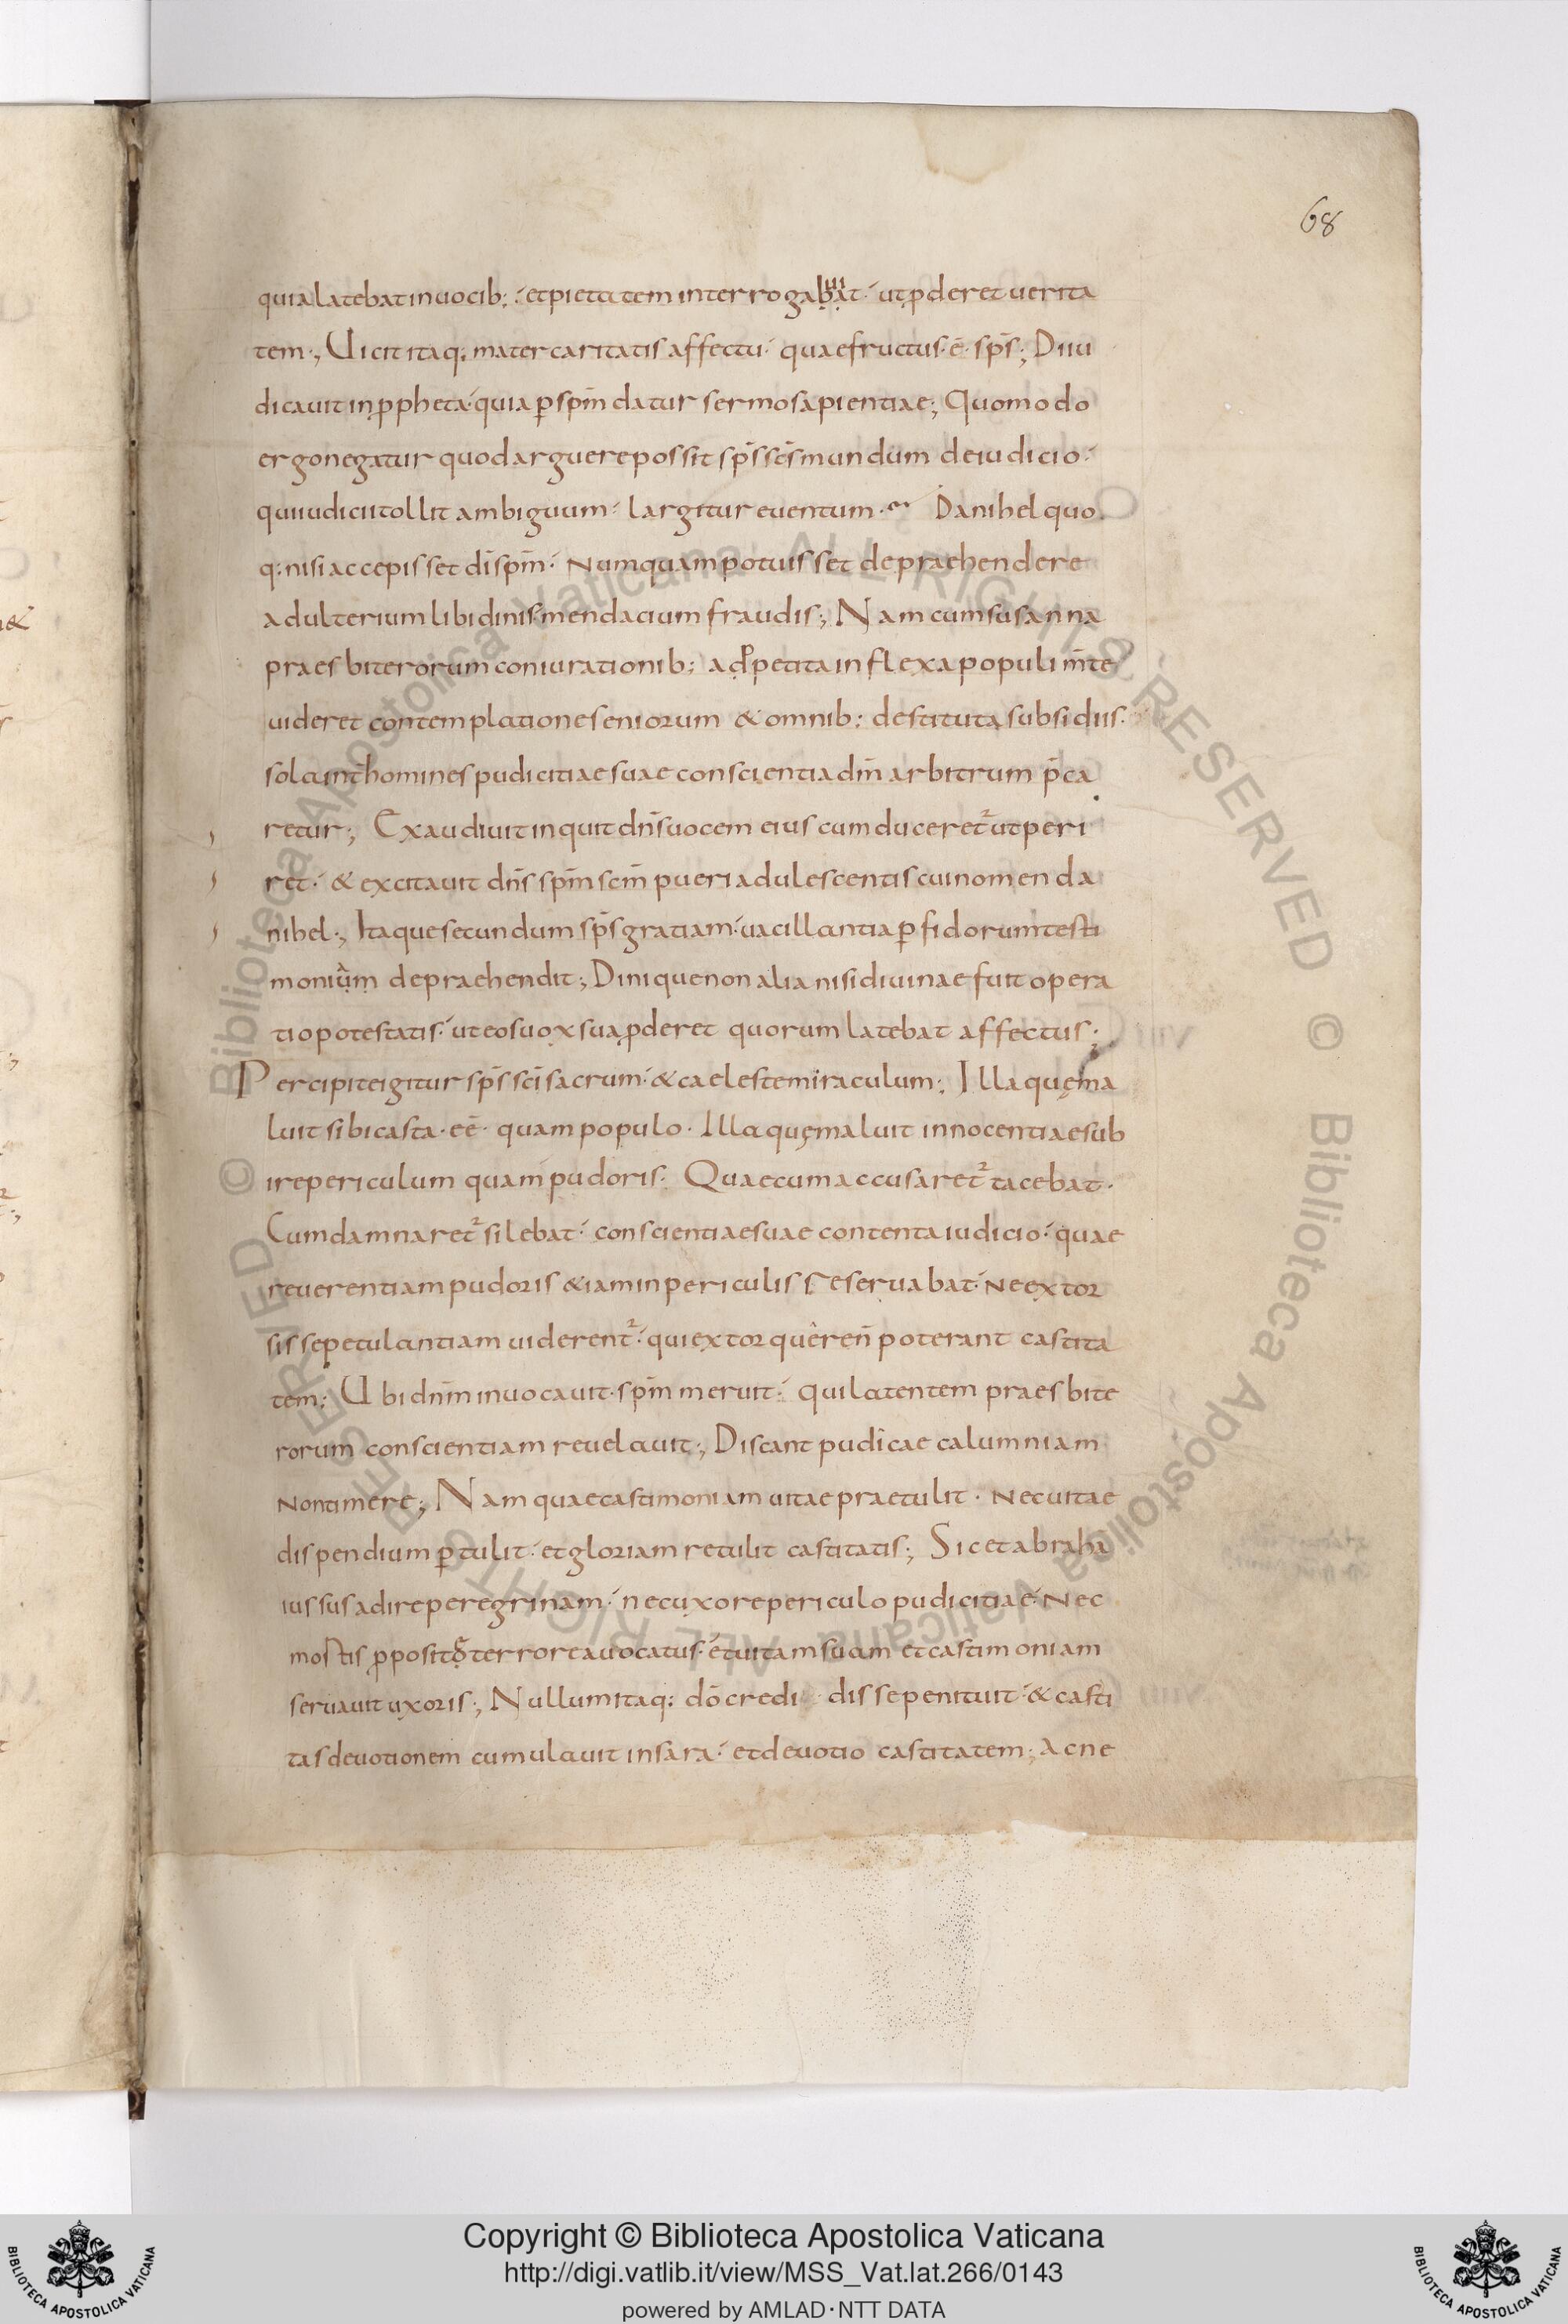 68
quia latebat in uocib; et pietatem interrogabat ut pderet uerita
tem; Uicit itaq; mater caritatis affectu quae fructus ē sp̄s; Diiu
dicauit in ppheta quia p sp̄m datur sermo sapientiae; Quomodo
ergo negatur quod arguere possit sp̄s sc̄s mundum de iudicio
qui iudicii tollit ambiguum largitur euentum. Danihel quo
q; nisi accepisset dī sp̄m Numquam potuisset depraehendere
adulterium libidinis mendacium fraudis; Nam cum susanna
praesbiterorum coniurationib; adpetita in flexa populi m̄te
uideret contemplatione seniorum & omnib; destituta subsidiis.
sola int homines pudicitiae suae conscientia dm̄ arbitrum p̄ca
retur; Exaudiuit inquit dn̄s uocem eius cum duceret᷑ ut peri
ret & excitauit dn̄s sp̄m sc̄m pueri adulescentis cui nomen da
nihel; Itaque secundum sp̄s gratiam uacillantia pfidorum testi
monium depraehendit; Dinique non alia nisi diuinae fuit opera
tio potestatis ut eos uox sua pderet quorum latebat affectus;
Percipite igitur sp̄s sc̄i sacrum & caeleste miraculum; Illa quę ma
luit sibi casta eē quam populo. Illa quę maluit innocentiae sub
ire periculum quam pudoris. Quae cum accusaret᷑ tacebat.
Cum damnaret᷑ silebat conscientiae suae contenta iudicio quae
reuerentiam pudoris & iam in periculis reseruabat Ne extor
sisse petulantiam uiderent᷑ qui extorquêreñ poterant castita
tem; Ubi dnm̄ inuocauit sp̄m meruit qui latentem praesbite
rorum conscientiam reuelauit; Discant pudicae calumniam
Non timere; Nam quae castimoniam uitae praetulit. Nec uitae
dispendium ptulit et gloriam retulit castitatis; Sic et abraha
iussus adire peregrinam nec uxore periculo pudicitiae Nec
mortis pposito terrore auocatus et uitam suam et castimoniam
seruauit uxoris; Nullum itaq; dō credi disse penituit & casti
tas deuotionem cumulauit in sara et deuotio castitatem; Ac ne
© Biblioteca Apostolica Vaticana ALL RIGHTS RESERVED © Biblioteca Apostolica Vaticana ALL RIGHTS RESERVED
Copyright © Biblioteca Apostolica Vaticana
http://digi.vatlib.it/view/MSS_Vat.lat.266/0143
powered by AMLAD·NTT DATA
BIBLIOTECA APOSTOLICA VATICANA
BIBLIOTECA APOSTOLICA VATICANA